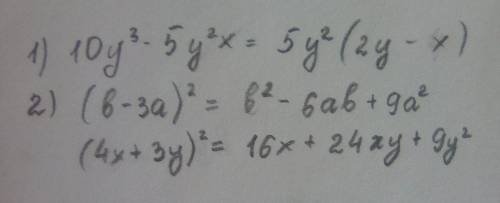 1) 10y³ - 5y²x = 5y² (2y - x)
2) (b - 3a)² = b² - 6ab + 9a²
(4x + 3y)² = 16x + 24xy + 9y²